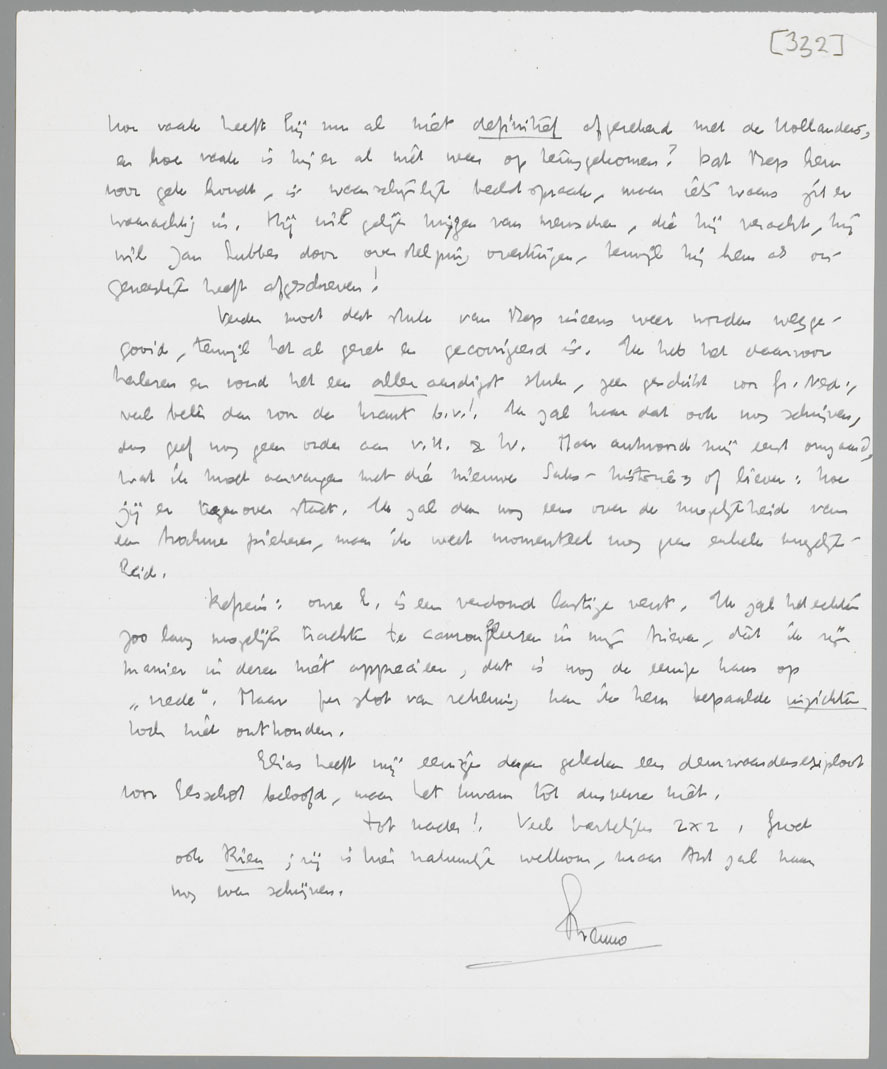 [332]
hoe vaak heeft hij nu al niet definitief afgerekend met de Hollanders,
en hoe vaak is hij er al niet weer op teruggekomen? Dat Bep hem
voor gek houdt, is waarschijnlijk beeldspraak, maar iets waars zit er
waarachtig in. Hij wil gelijk krijgen van menschen, die hij veracht, hij
wil Jan Lubbes door overstelping overtuigen, terwijl hij hem als on-
geneeslijk heeft afgeschreven!
Verder moet dat stuk van Bep ineens weer worden wegge-
gooid, terwijl het al gezet en gecorrigeerd is. Ik heb het daarvoor
herlezen en vond het een alleraardigst stuk, zeer geschikt voor Gr. Ned.,
veel beter dan voor de krant b.v.! Ik zal haar dat ook nog schrijven,
dus geef nog geen order aan v.H. & W. Maar antwoord mij eerst omgaand,
wat ik moet aanvangen met die nieuwe Saks-historie, of liever: hoe
jij er tegenover staat. Ik zal dan nog eens over de mogelijkheid van
een truc, maar ik weet momenteel nog geen enkele mogelijk-
heid.
Refrein: onze E. is een verdomd lastige vent. Ik zal het echter
zoo lang mogelijk trachten te camoufleeren in mijn brieven, dat ik zijn
manier in deren niet apprecieer, dat is nog de eenige kans op
„vrede". Maar per slot van rekening kan ik hem bepaalde inzichten
toch niet onthouden.
Elias heeft mij eenige dagen geleden een
voor Elsschot beloofd, maar het kwam tot dusverre niet.
Tot nader! Veel hartelijks 2x2, groet
ook Rien; zij is hier natuurlijk welkom, maar Ant zal haar
nog even schrijven.
Menno